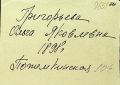 Григорьева
Ольга Яковлевна
1898г.
Потемкинская